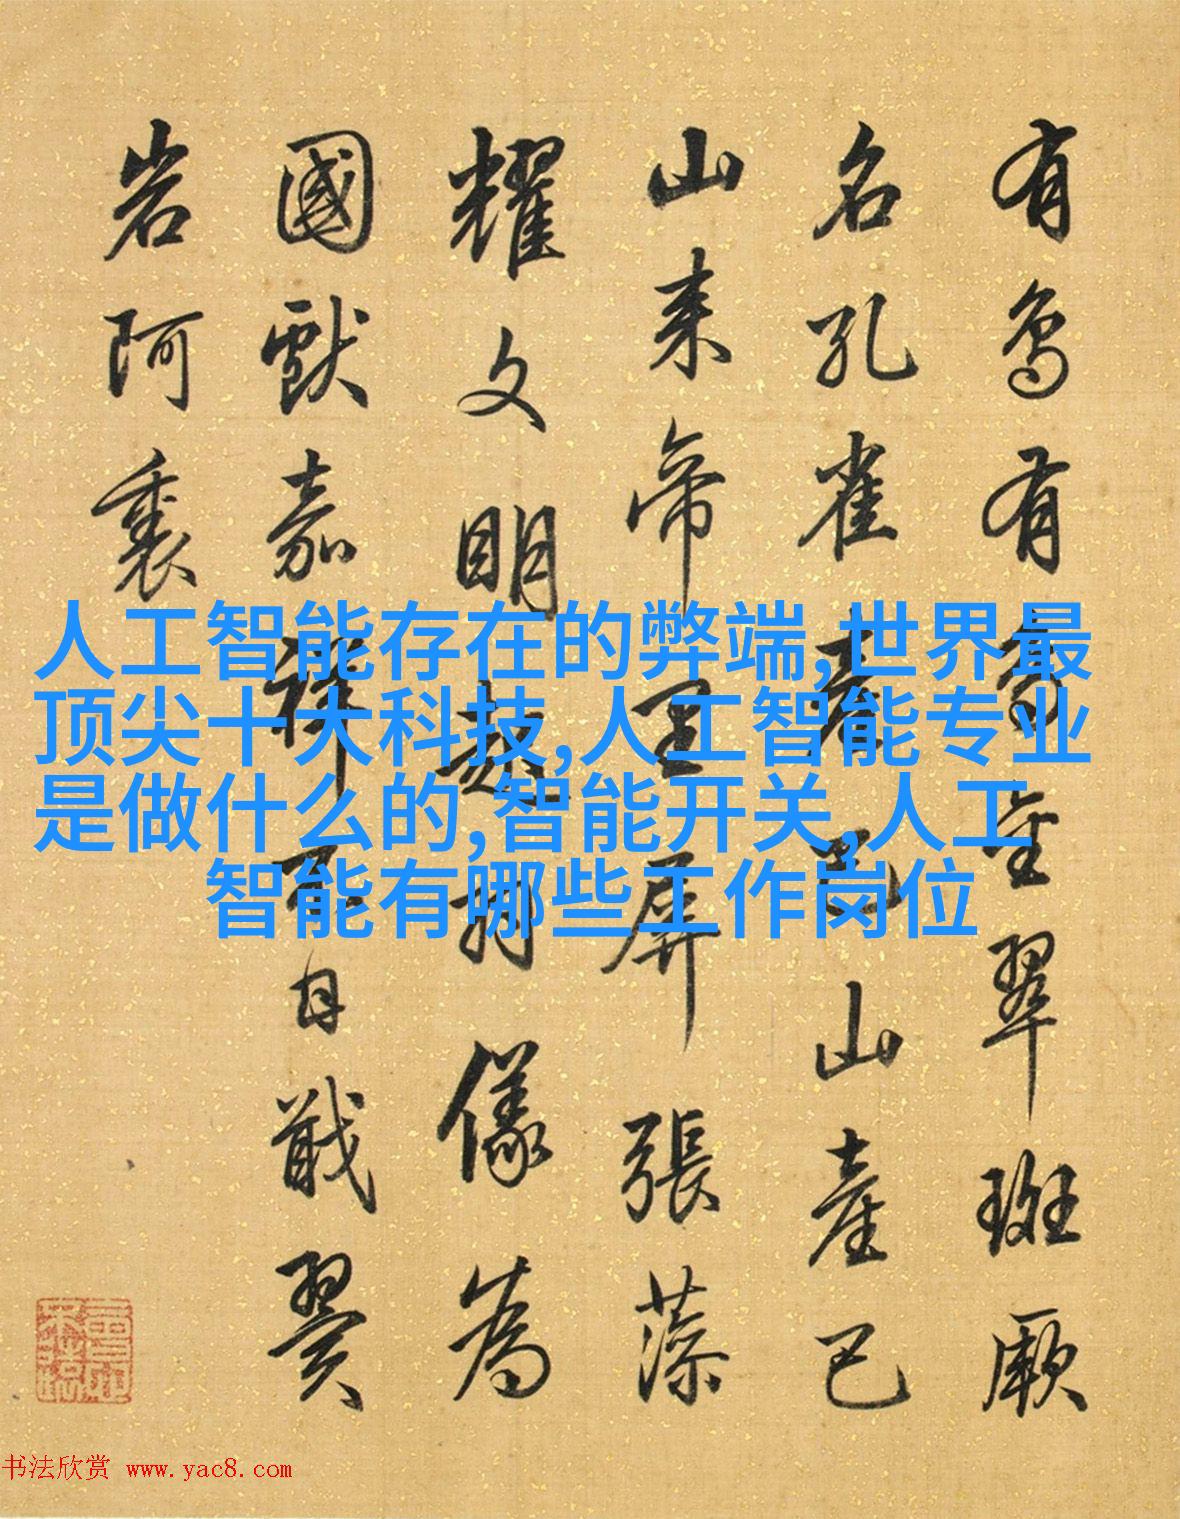 有鳥有鳥金翠斑厥
名孔雀山產巴
山来帝屏張藻
耀文明羽儀為
國獻嘉祥戢翼
岩阿裏
人工智能存在的弊端,世界最
顶尖十大科技,人工智能专业
是做什么的,智能开关,人工
智能有哪些工作岗位
书法欣赏 www.yac8.com